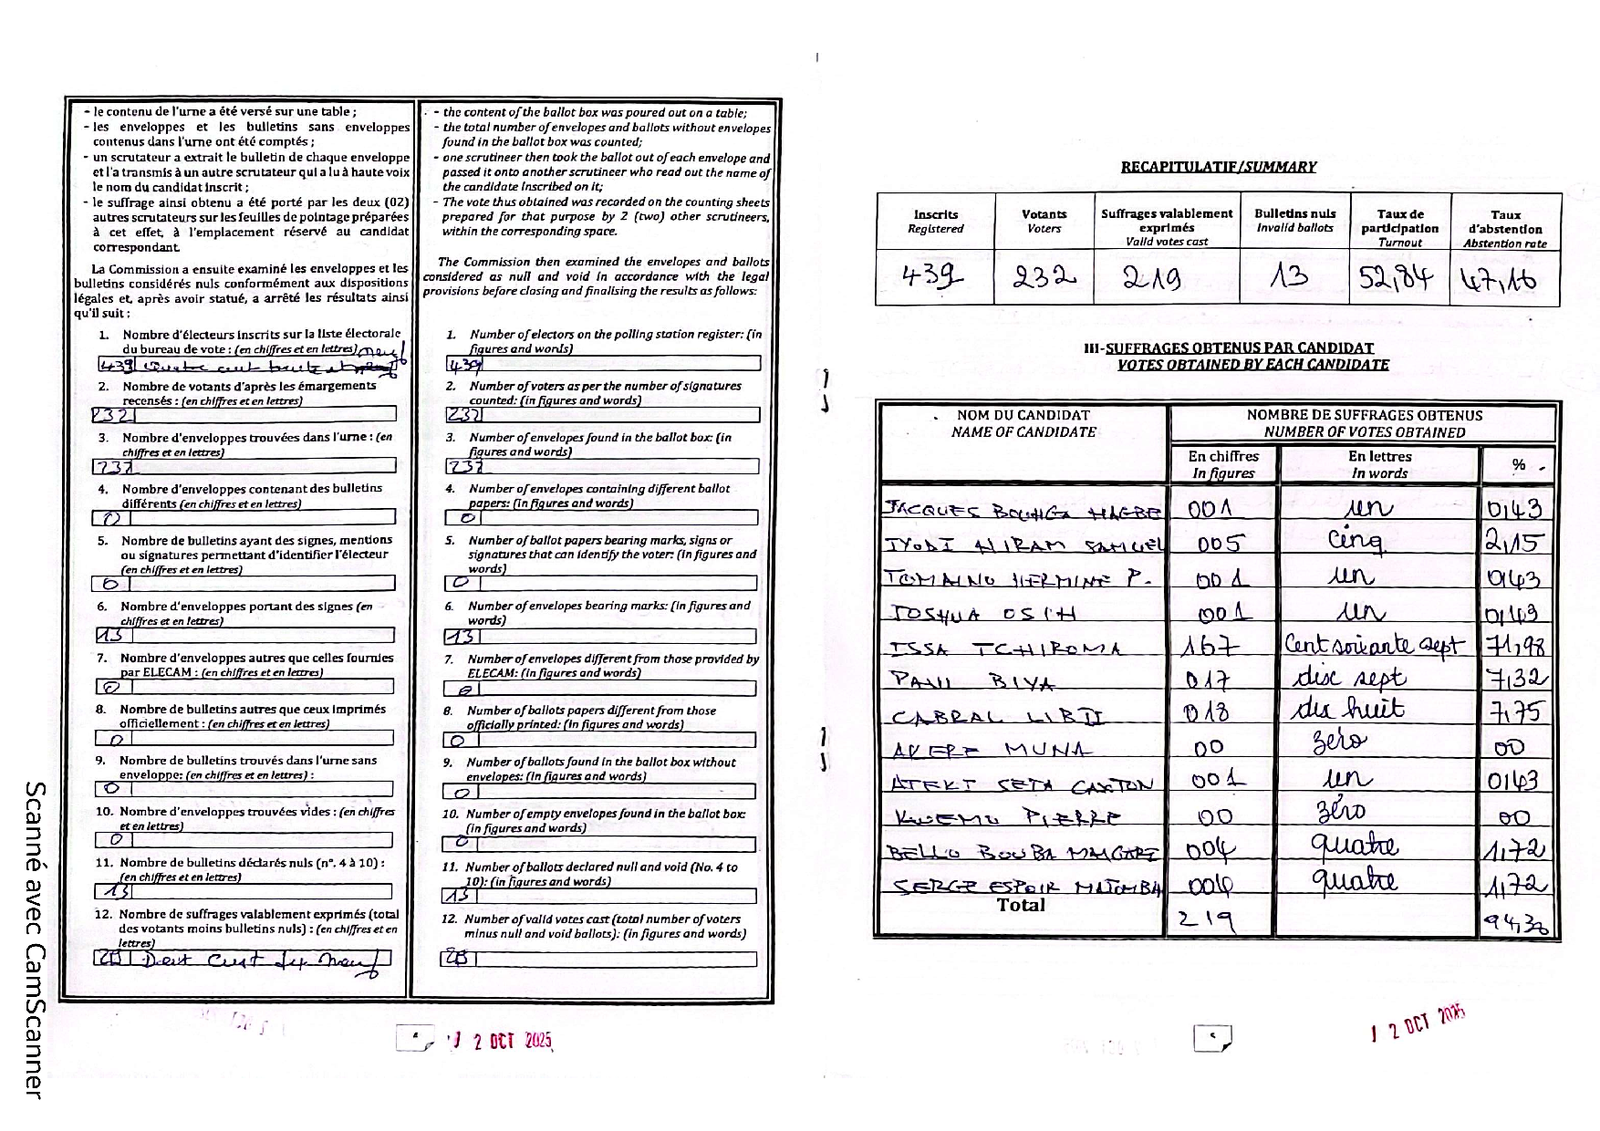 - le contenu de l'urne a été versé sur une table ;
- les enveloppes et les bulletins sans enveloppes
contenus dans l'urne ont été comptés ;
- un scrutateur a extrait le bulletin de chaque enveloppe
et l'a transmis à un autre scrutateur qui a lu à haute voix
le nom du candidat inscrit ;
- le suffrage ainsi obtenu a été porté par les deux (02)
autres scrutateurs sur les feuilles de pointage préparées
à cet effet, à l'emplacement réservé au candidat
correspondant.
La Commission a ensuite examiné les enveloppes et les
bulletins considérés nuls conformément aux dispositions
légales et, après avoir statué, a arrêté les résultats ainsi
qu'il suit :
1. Nombre d'électeurs inscrits sur la liste électorale
du bureau de vote : (en chiffres et en lettres) neuf
439 Quatre cent trente
2. Nombre de votants d'après les émargements
recensés : (en chiffres et en lettres)
232
3. Nombre d'enveloppes trouvées dans l'urne : (en
chiffres et en lettres)
232
4. Nombre d'enveloppes contenant des bulletins
différents (en chiffres et en lettres)
0
5. Nombre de bulletins ayant des signes, mentions
ou signatures permettant d'identifier l'électeur
(en chiffres et en lettres)
0
6. Nombre d'enveloppes portant des signes (en
chiffres et en lettres)
13
7. Nombre d'enveloppes autres que celles fournies
par ELECAM : (en chiffres et en lettres)
0
8. Nombre de bulletins autres que ceux imprimés
officiellement : (en chiffres et en lettres)
0
9. Nombre de bulletins trouvés dans l'urne sans
enveloppe: (en chiffres et en lettres) :
0
10. Nombre d'enveloppes trouvées vides : (en chiffres
et en lettres)
0
11. Nombre de bulletins déclarés nuls (n°. 4 à 10) :
(en chiffres et en lettres)
13
12. Nombre de suffrages valablement exprimés (total
des votants moins bulletins nuls) : (en chiffres et en
lettres)
Deux Cent dix Neuf
- the content of the ballot box was poured out on a table;
- the total number of envelopes and ballots without envelopes
found in the ballot box was counted;
- one scrutineer then took the ballot out of each envelope and
passed it onto another scrutineer who read out the name of
the candidate inscribed on it;
- The vote thus obtained was recorded on the counting sheets
prepared for that purpose by 2 (two) other scrutineers,
within the corresponding space.
The Commission then examined the envelopes and ballots
considered as null and void in accordance with the legal
provisions before closing and finalising the results as follows:
1. Number of electors on the polling station register: (in
figures and words)
439
2. Number of voters as per the number of signatures
counted: (in figures and words)
232
3. Number of envelopes found in the ballot box: (in
figures and words)
232
4. Number of envelopes containing different ballot
papers: (in figures and words)
0
5. Number of ballot papers bearing marks, signs or
signatures that can identify the voter: (in figures and
words)
0
6. Number of envelopes bearing marks: (in figures and
words)
13
7. Number of envelopes different from those provided by
ELECAM: (in figures and words)
0
8. Number of ballots papers different from those
officially printed: (in figures and words)
0
9. Number of ballots found in the ballot box without
envelopes: (in figures and words)
0
10. Number of empty envelopes found in the ballot box:
(in figures and words)
0
11. Number of ballots declared null and void (No. 4 to
10): (in figures and words)
13
12. Number of valid votes cast (total number of voters
minus null and void ballots): (in figures and words)
12 OCT 2025
RECAPITULATIF/SUMMARY
Inscrits Votants Suffrages valablement exprimés Bulletins nuls Taux de participation Taux d'abstention
Registered Voters Valid votes cast Invalid ballots Turnout Abstention rate
439 232 219 13 52,84 47,16
III-SUFFRAGES OBTENUS PAR CANDIDAT
VOTES OBTAINED BY EACH CANDIDATE
NOM DU CANDIDAT NOMBRE DE SUFFRAGES OBTENUS
NAME OF CANDIDATE NUMBER OF VOTES OBTAINED
En chiffres En lettres %
In figures In words
JACQUES BOUHGA HAGBE 001 un 0,43
IYODI HIRAM SAMUEL 005 cinq 2,15
TOMAINO HERMINE P. 001 un 0,43
JOSHUA OSIH 001 un 0,43
ISSA TCHIROMA 167 Cent soixante sept 71,98
PAUL BIYA 017 dix sept 7,32
CABRAL LIBII 018 dix huit 7,75
AKERE MUNA 00 zéro 00
ATEKI SETA CAXTON 001 un 0,43
KWEMO PIERRE 00 zéro 00
BELLO BOUBA MAIGARI 004 quatre 1,72
SERGE ESPOIR MATOMBA 004 quatre 1,72
Total 219
12 OCT 2025
Scanné avec CamScanner